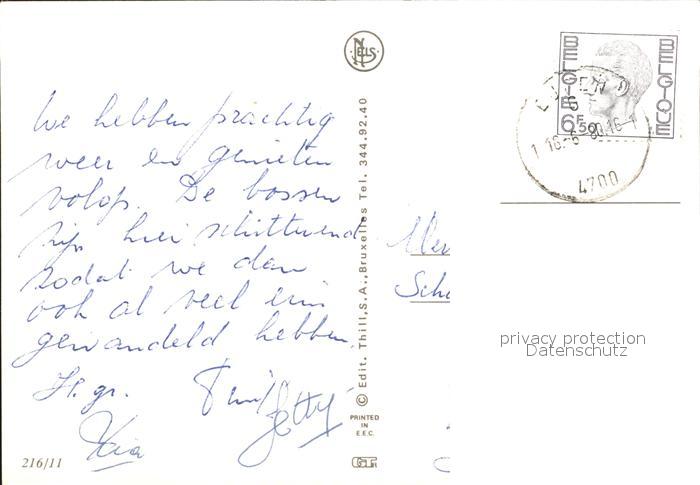 We hebben prachtig
weer en genieten
volop. De bossen
zijn hier schitterend
zodat we dan
ook al veel erin
gewandeld hebben.
H. gr.
216/11
NELS
© Edit. Thill, S.A., Bruxelles Tel. 344.92.40
PRINTED
IN
E.E.C.
BELGIE
BELGIQUE
6F50
EUPEN
4700
privacy protection
Datenschutz